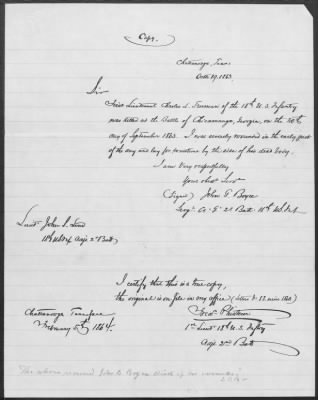 Copy.
Chattanooga, Tenn
Octr 19, 1863.
Sir
First Lieutenant Charles L. Truman of the 18th U.S. Infantry
was killed at the Battle of Chicamauga, Georgia, on the 20th
day of September 1863. I was severely wounded in the early part
of the day and lay for sometime by the side of his dead body.
I am Very respectfully
Your obdt Servt
(Signed) John G Boyer
Sergt Co. G 2d Batt. 18th U.S. Inf.
Lieut. John S. Lind
18th U.S. Inf Adjt 2d Batt
I certify that this is a true copy,
the original is on file in my office
Chattanooga Tennessee
February 5th 1864.
1st Lieut 18th U.S. Infty
Adjt 2nd Batt
The above named John G Boyer died of his wounds.